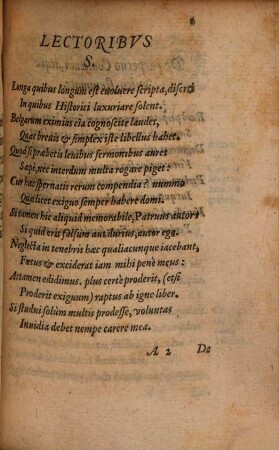 LECTORIBVS
S.
Longa quibus longum est euoluere scripta, diserti
In quibus Historici luxuriare solent.
Belgarum eximias eia cognoscite laudes,
Quas breuis & simplex iste libellus habet.
Quòd si præbetis leuibus sermonibus aures
Sæpè, nec interdum multa rogare piget:
Cur hæc spernatis rerum compendia? nummo
Quæ licet exiguo semper habere domi.
Si tamen hîc aliquid memorabile, Patruus autor;
Si quid erit falsum aut durius, autor ego.
Neglecta in tenebris hæc qualiacunque iacebant,
Fœtus & exciderat iam mihi penè meus:
Attamen edidimus. plus certè proderit, (etsi
Proderit exiguum) raptus ab igne liber.
Si studui solùm multis prodesse, voluntas
Inuidia debet nempe carere mea.
A 2 De